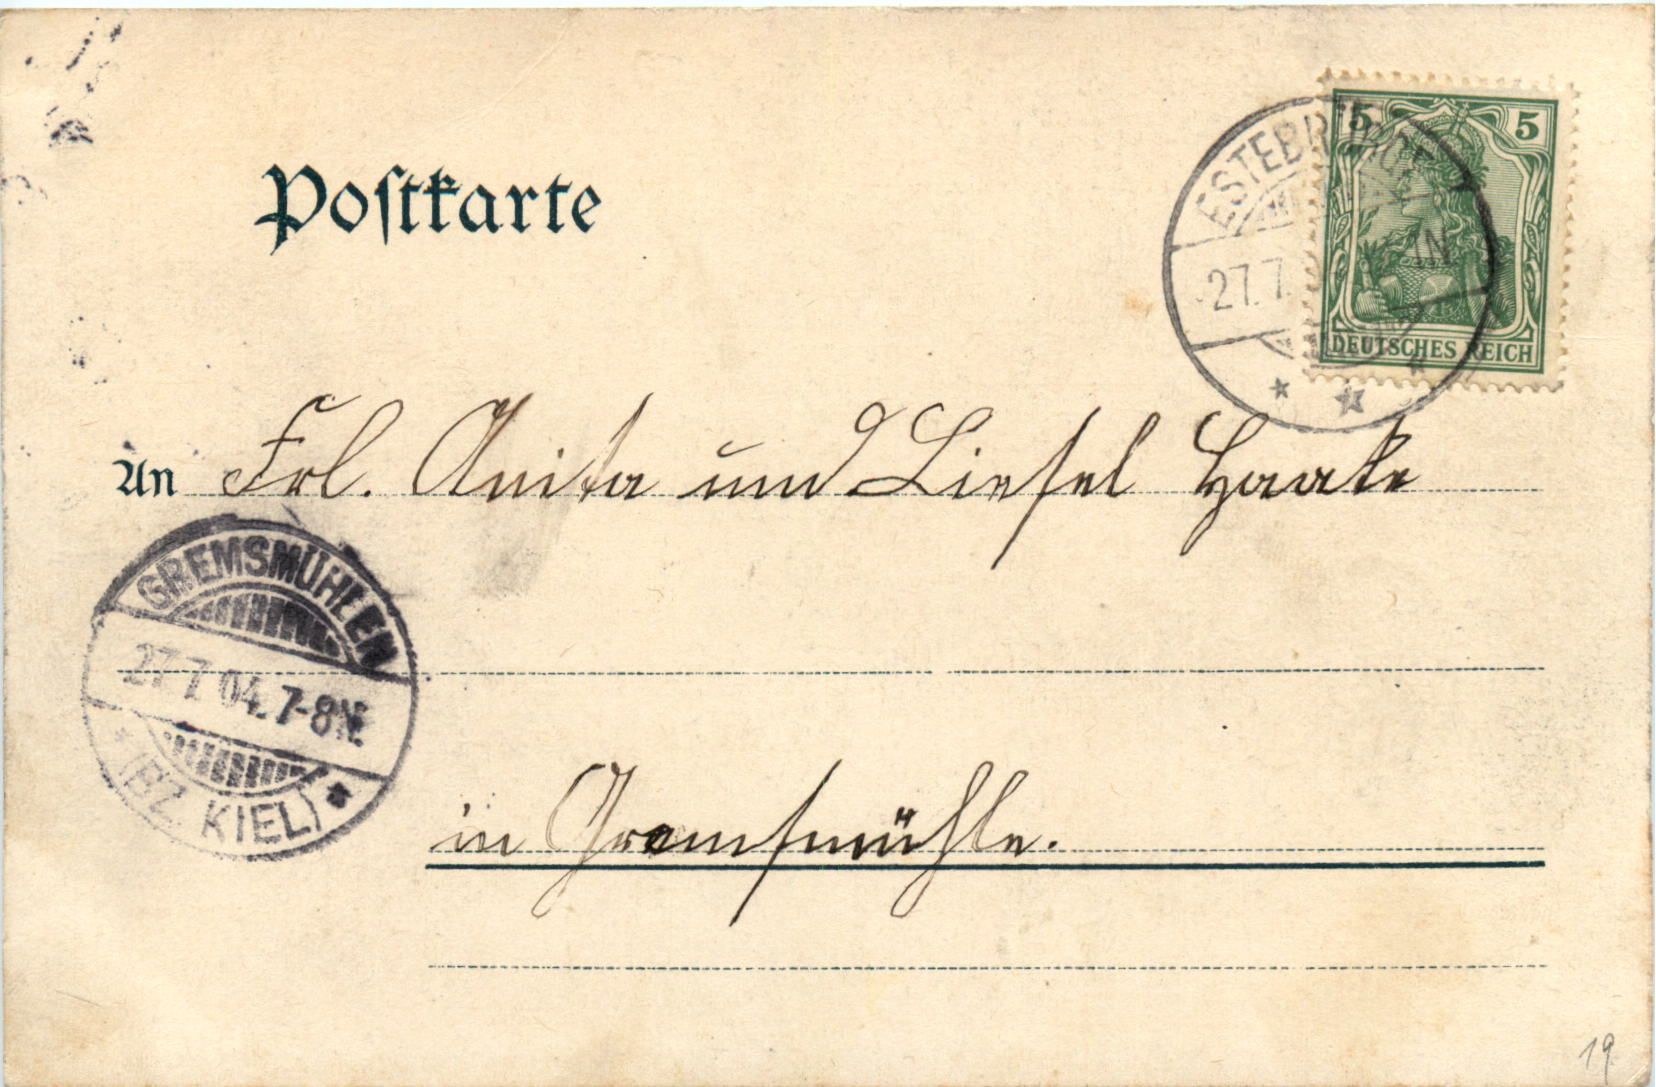 Postkarte
5 5
DEUTSCHES REICH
ESTEBRÜGGE
27.7. N
An Frl. Anita und Liesel Haake
GREMSMÜHLEN
27.7.04. 7-8N.
(BZ. KIEL)
in Gremsmühle.
19